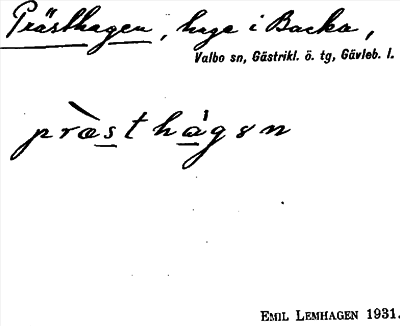 Prästhagen, hage i Backa,
Valbo sn, Gästrikl. ö. tg, Gävleb. l.
pròsthágən
EMIL LEMHAGEN 1931.